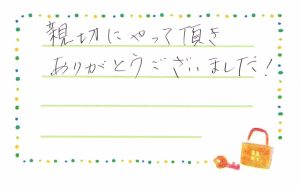 親切にやって頂き
ありがとうございました！